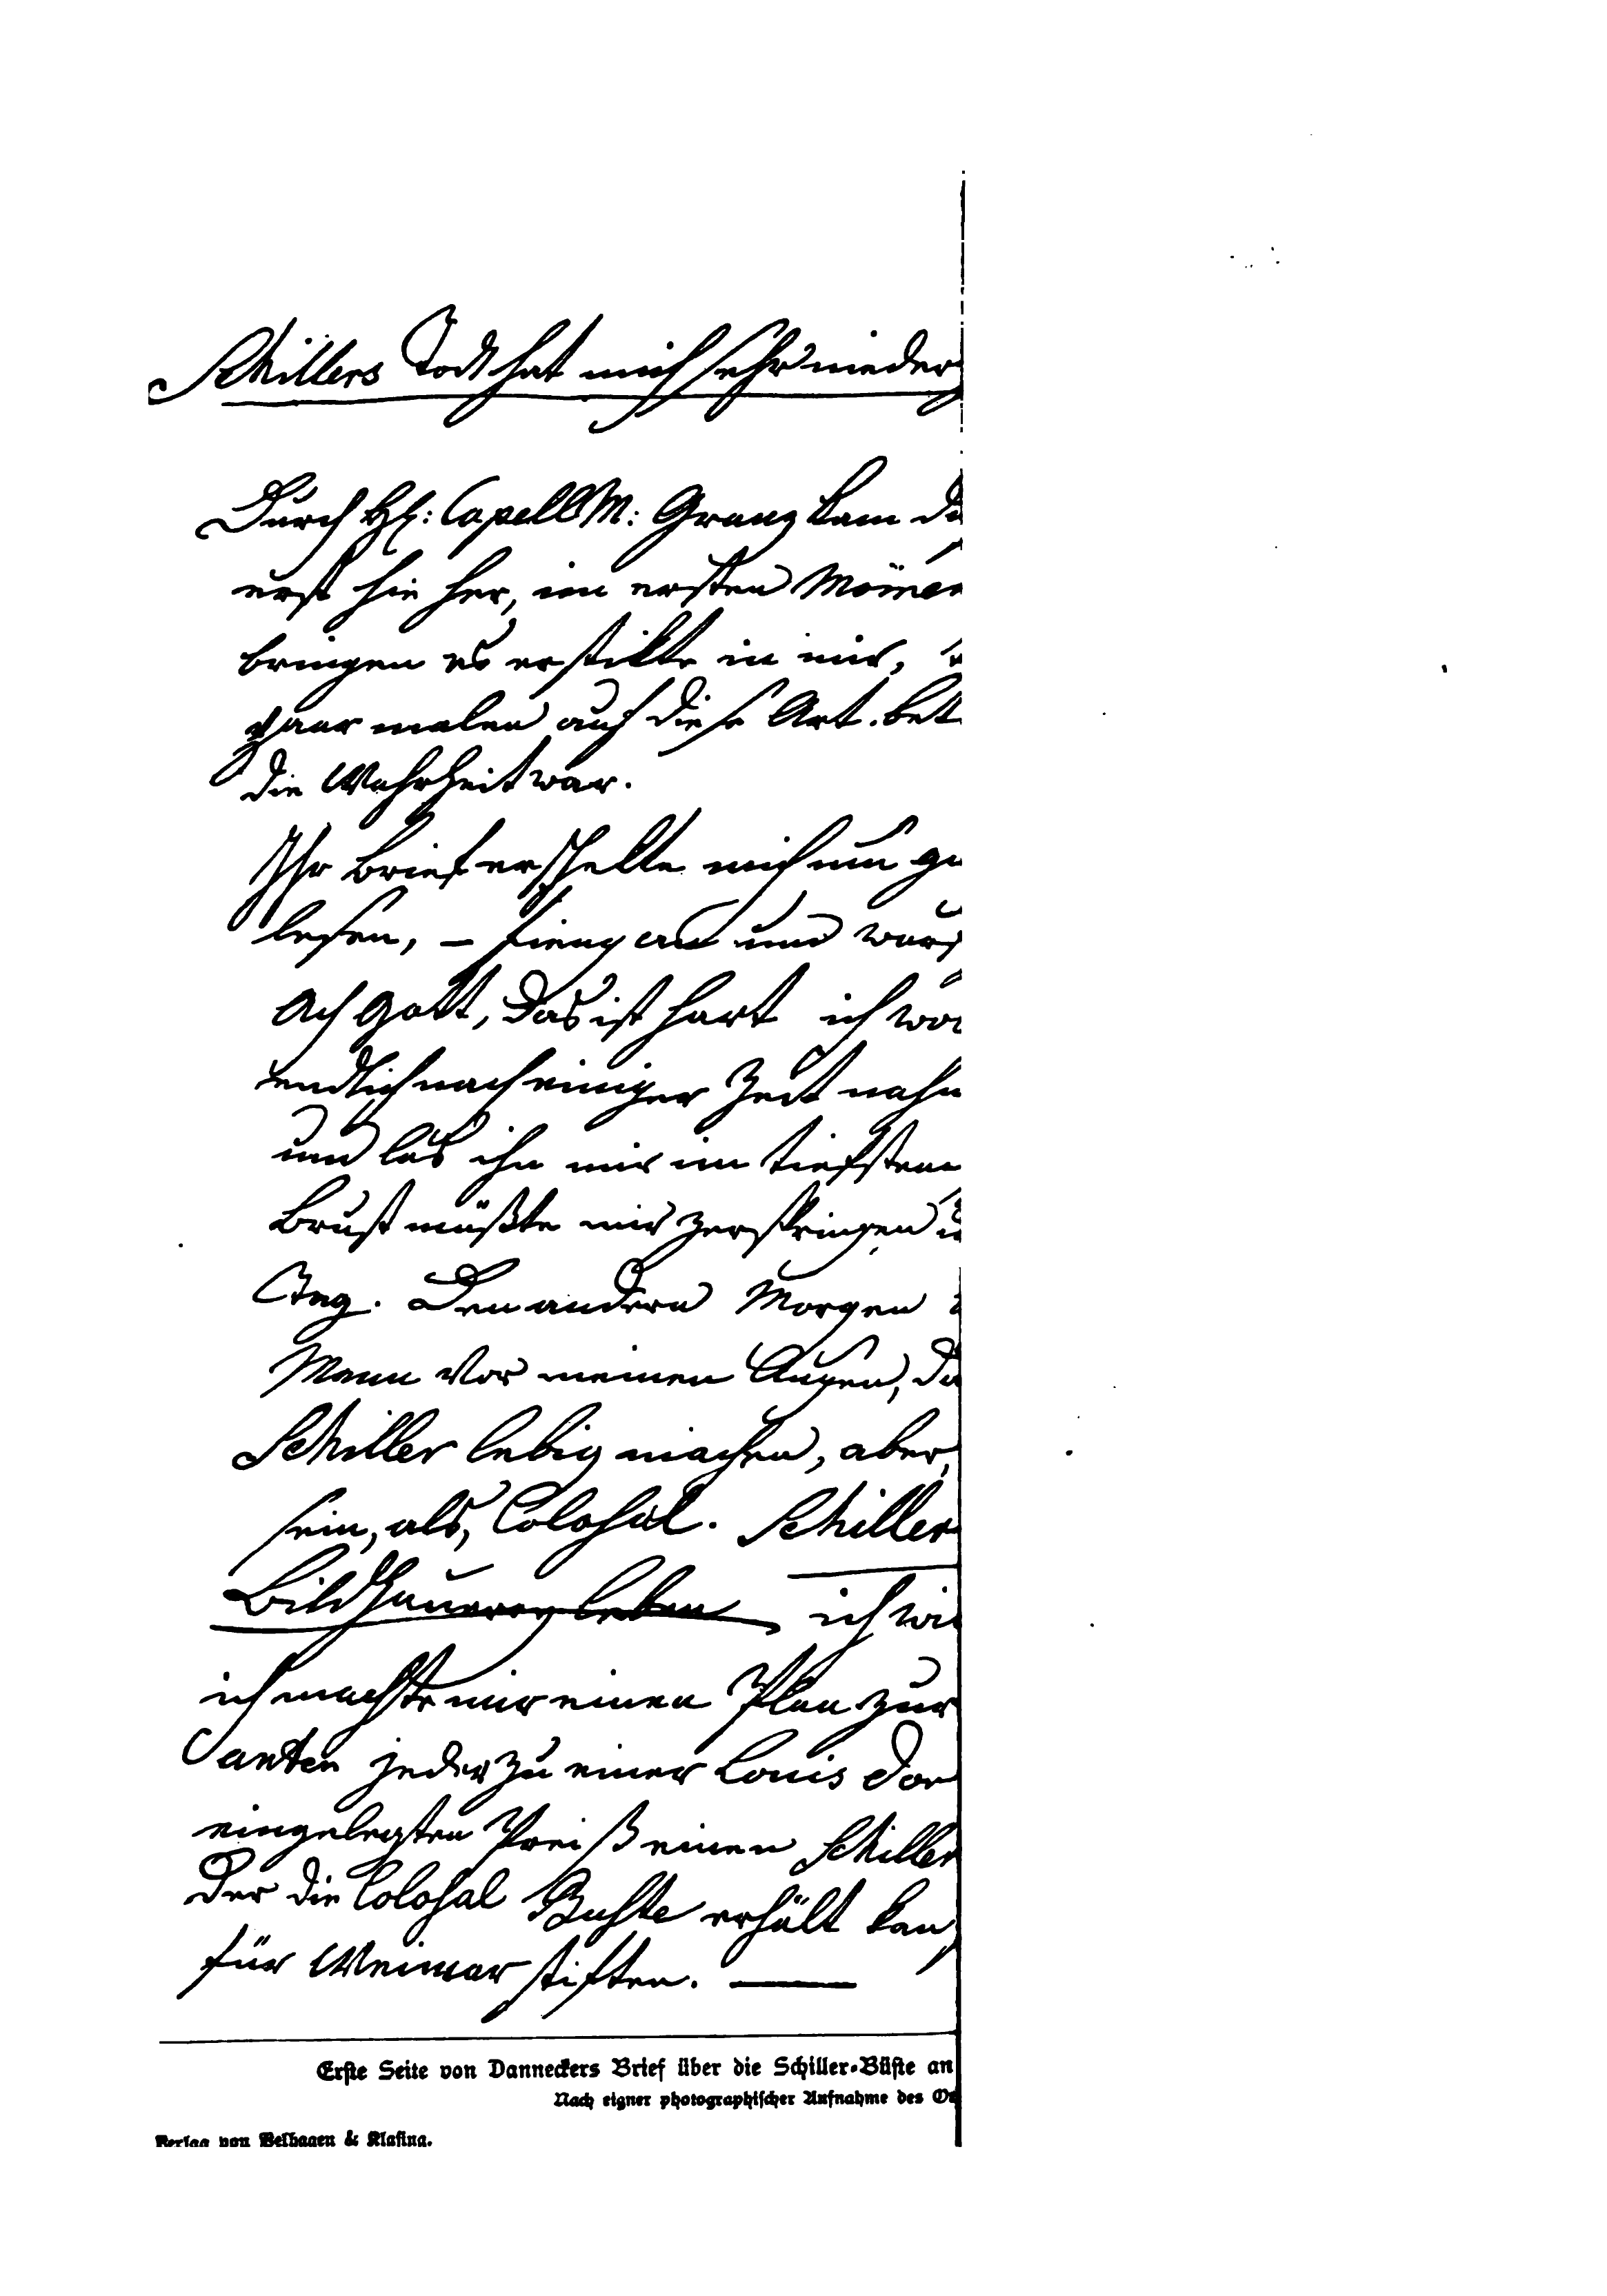 Schillers Todt hat mich sehr nieder
Durch H: CapellM: Granz kam
erst hie her, im ersten Momen
bringen es erstikte in mir,
paar malen auf diese Art. bet
die Wahrheit war.
Ihr Brief erstellte mich um
lesen, – fieng an und warf
Ach Gott, das ist hart ich
endlich nach einiger Zeit nahm
und las ihn mir im tiefsten
Brust müßte mir zerspringen
Tag. Den andern Morgen
Mann vor meinen Augen, da
Schiller lebig machen, aber,
sein, als, Colosal. Schiller
Bildhauerey leben ich wi
ich machte mir einen Plan zur
anten jeder zu einer Louis dor
eingelegten Preiß einen Schiller
der die Colosal Buste erhält kan
für Weimar stiften. —
Erste Seite von Danneckers Brief über die Schiller-Büste an
Nach eigner photographischer Aufnahme des
Verlag von Velhagen & Klasing.